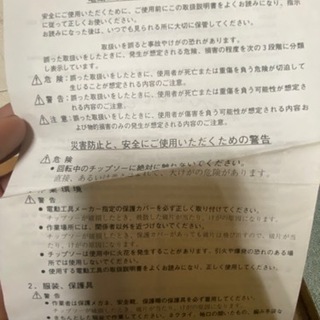 安全にご使用いただくために、ご使用前にこの取扱説明書をよくお読みになり、指示
に従って正しくお使いください。
お読みになった後は、いつでも見られる所に大切に保管してください。
取扱いを誤ると事故やけがの恐れがあります。
誤った取扱いをしたときに、発生が想定される危険、損害の程度を次の３段階に分類
し表示しています。
危 険：誤った取扱いをしたときに、使用者が死亡または重傷を負う危険が切迫して
生じることが想定される内容のご注意。
警 告：誤った取扱いをしたときに、使用者が死亡または重傷を負う可能性が想定さ
れる内容のご注意。
注 意：誤った取扱いをしたときに、使用者が傷害を負う可能性が想定される内容お
よび物的損害のみの発生が想定される内容のご注意。
災害防止と、安全にご使用いただくための警告
危 険
・回転中のチップソーに絶対に触れないでください。
環境
警 告
電動工具メーカー指定の保護カバーを必ず正しく取り付けてください。
作業場所には、関係者以外を近づけないでください。
チップソーは使用中に火花を発生することがあります。引火や爆発の恐れのある場
所では使用しないでください。
使用する電動工具の取扱説明書をよくお読みになり、正しく使用してください。
２．服装、保護具
警 告
作業者は保護メガネ、安全靴、保護帽等の保護具を必ず着用してください。